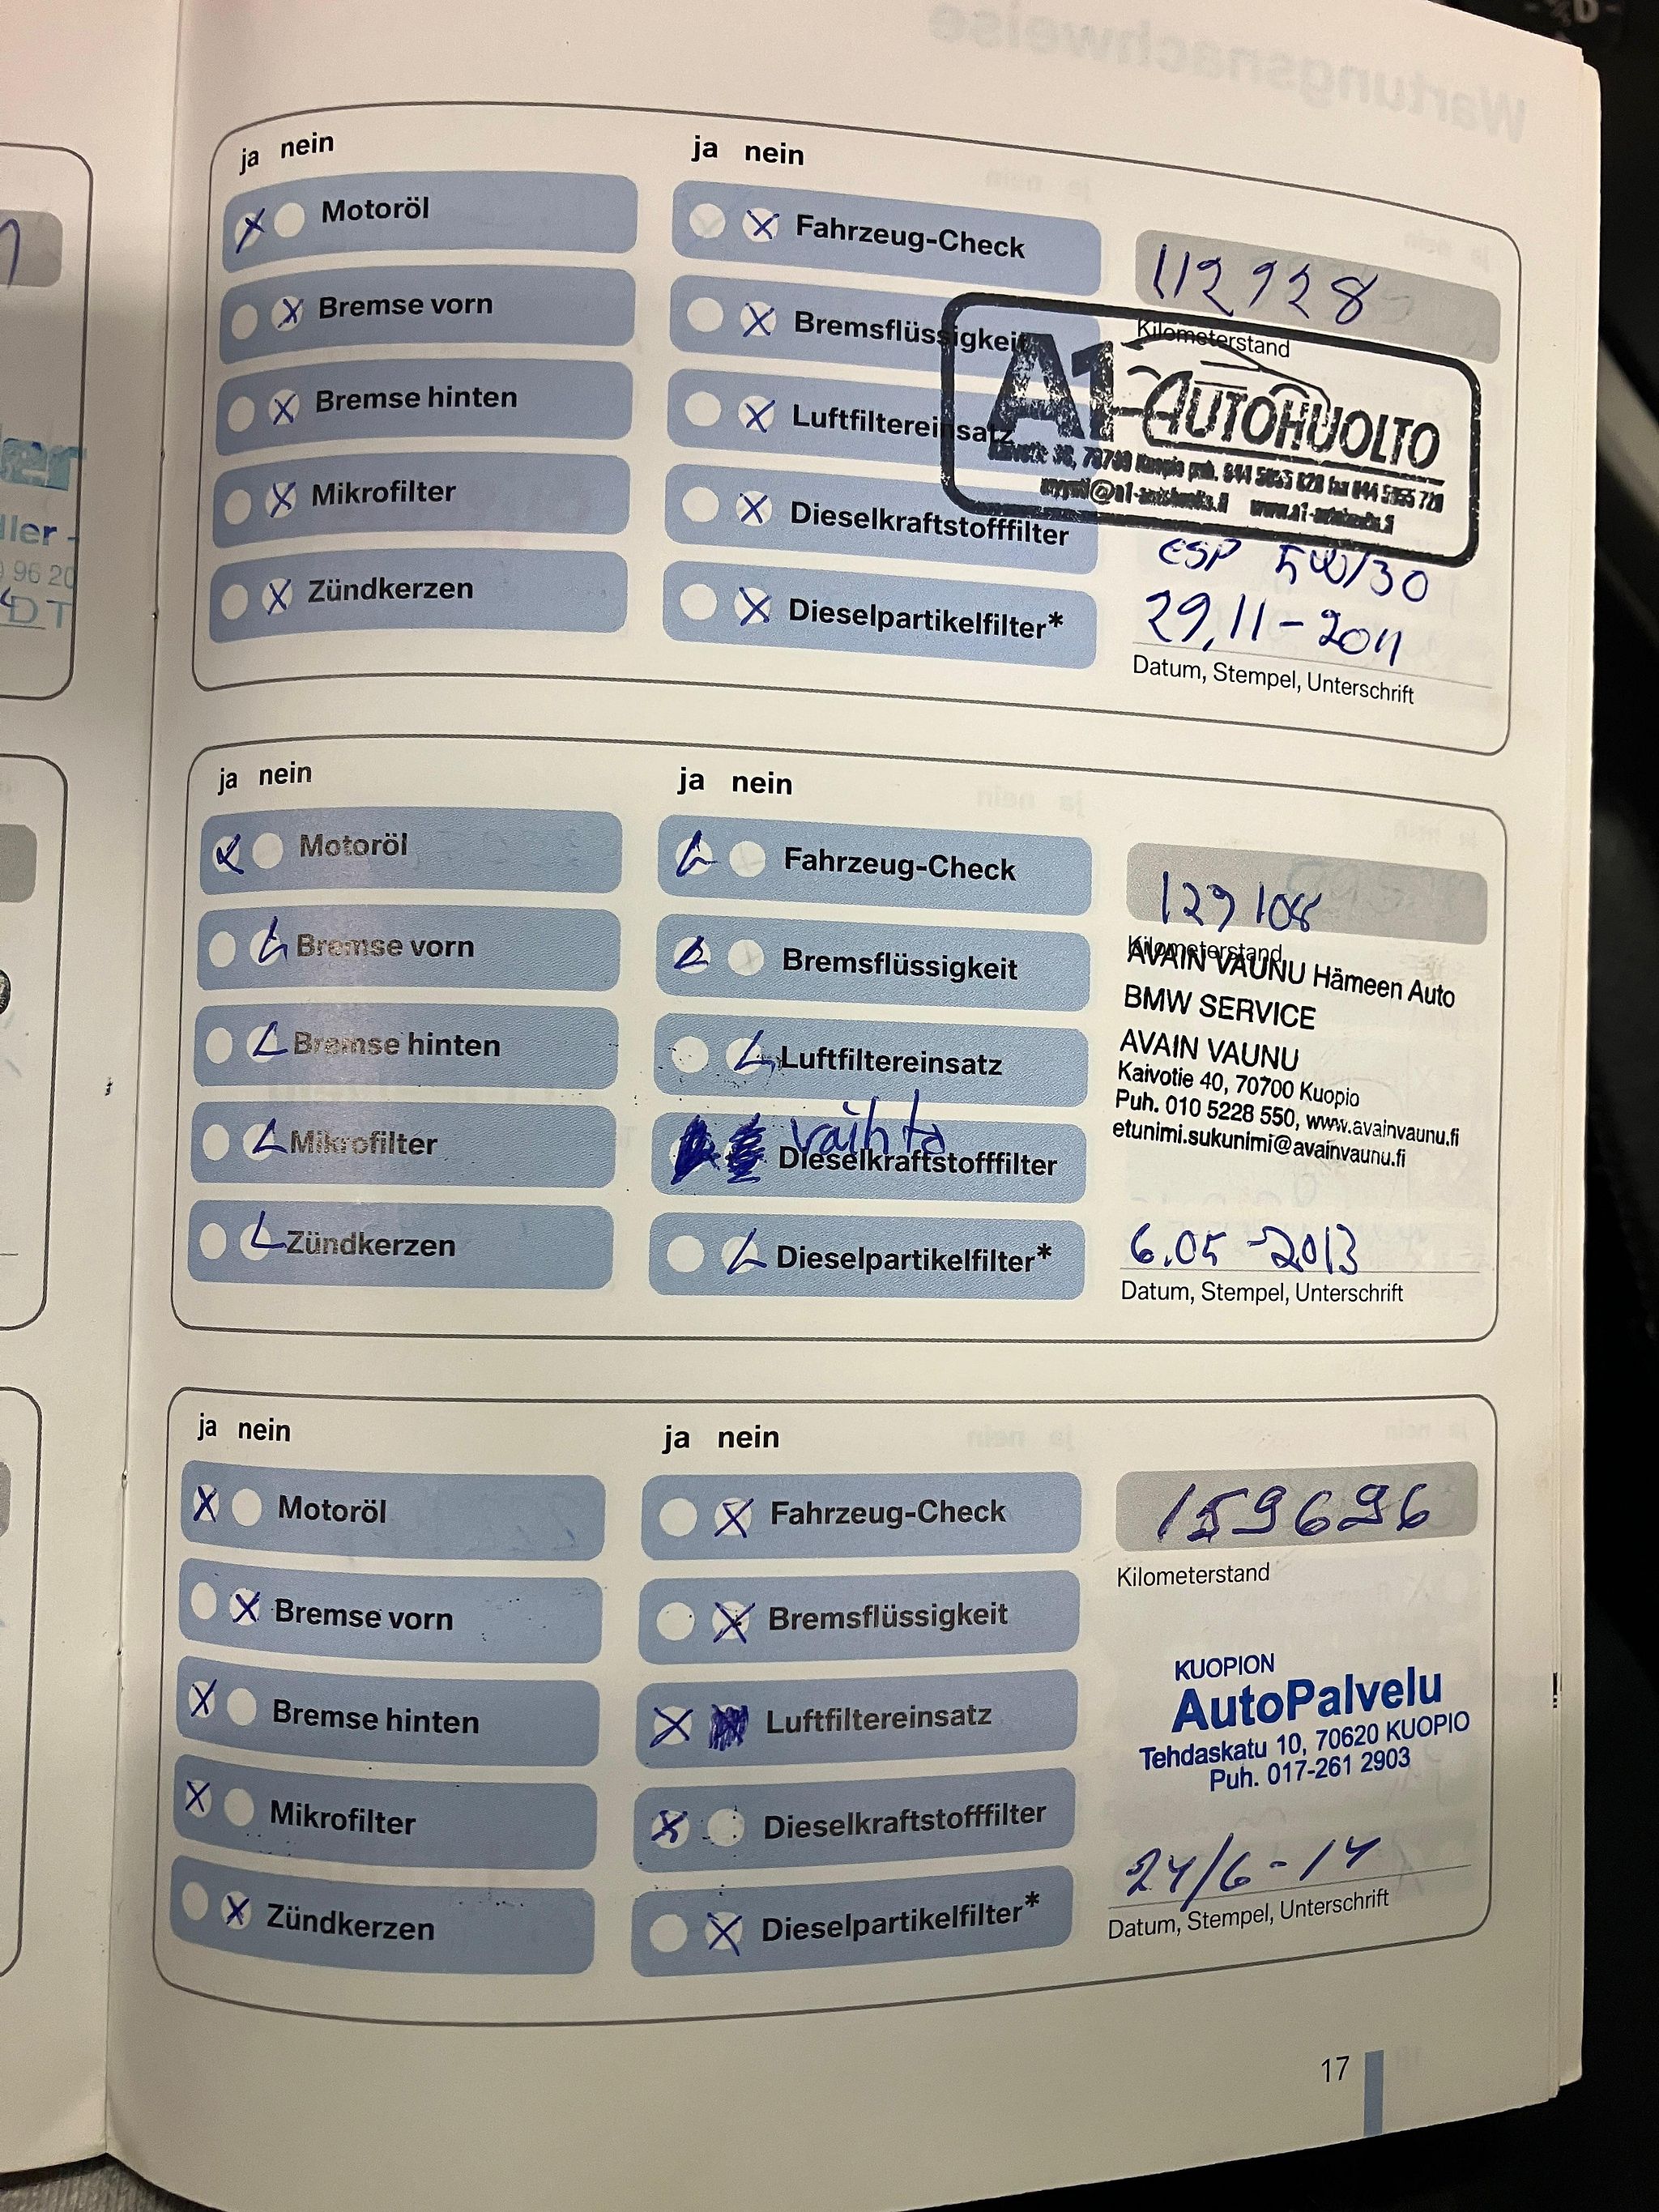 ja nein
Motoröl
Bremse vorn
Bremse hinten
Mikrofilter
Zündkerzen
ja nein
Fahrzeug-Check
Bremsflüssigkeit
Luftfiltereinsatz
Dieselkraftstofffilter
Dieselpartikelfilter*
112928
Kilometerstand
A1-AUTOHUOLTO
ESP 5W/30
29,11-2011
Datum, Stempel, Unterschrift
ja nein
Motoröl
Bremse vorn
Bremse hinten
Mikrofilter
Zündkerzen
ja nein
Fahrzeug-Check
Bremsflüssigkeit
Luftfiltereinsatz
vaihto
Dieselkraftstofffilter
Dieselpartikelfilter*
129108
Kilometerstand
AVAIN VAUNU Hämeen Auto
BMW SERVICE
AVAIN VAUNU
Kaivotie 40, 70700 Kuopio
Puh. 010 5228 550, www.avainvaunu.fi
etunimi.sukunimi@avainvaunu.fi
6.05-2013
Datum, Stempel, Unterschrift
ja nein
Motoröl
Bremse vorn
Bremse hinten
Mikrofilter
Zündkerzen
ja nein
Fahrzeug-Check
Bremsflüssigkeit
Luftfiltereinsatz
Dieselkraftstofffilter
Dieselpartikelfilter*
159696
Kilometerstand
KUOPION
AutoPalvelu
Tehdaskatu 10, 70620 KUOPIO
Puh. 017-261 2903
24/6-14
Datum, Stempel, Unterschrift
17